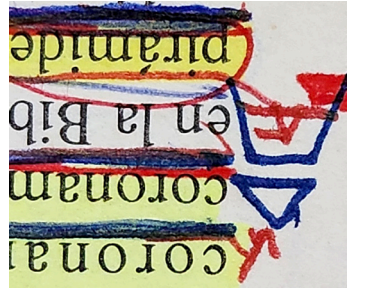 corona
coronam
en la Bib
pirámide